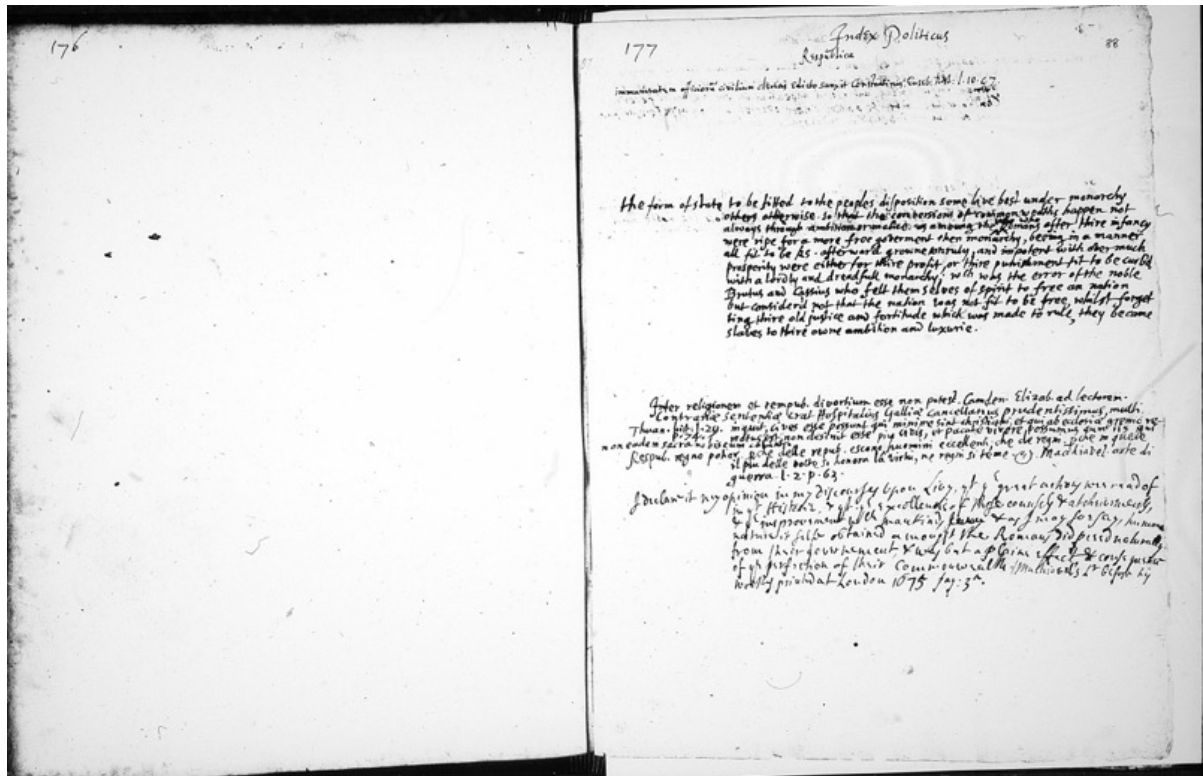 176
177
Index Politicus
88
Respublica
immunitatem officiorū civilium clericis Edicto sanxit Constantinus. Euseb. hist. l. 10. c 7.
the form of state to be fitted to the peoples disposition some live best under monarchy
others otherwise. so that the conversions of commonwealths happen not
always through ambition or malice. as amoung the Romans who after thire infancy
were ripe for a more free goverment then monarchy, beeing in a manner
all fit to be Ks. afterward growne unruly, and impotent with overmuch
prosperity were either for thire profit, or thire punishment fit to be curb'd
with a lordly and dreadfull monarchy; wch was the error of the noble
Brutus and Cassius who felt themselves of spirit to free an nation
but consider'd not that the nation was not fit to be free, whilst forget
ting thire old justice and fortitude which was made to rule, they became
slaves to thire owne ambition and luxurie.
Inter religionem et rempub. divortium esse non potest. Camden. Elizab. ad lectorem.
Contrariæ sententiæ erat Hospitalius Galliæ Cancellarius prudentissimus, multi
Thuan. hist. l. 29. inquit, cives esse possunt qui minime sint christiani, et qui ab ecclesiæ gremio re
p. 74. motus est, non desinit esse civis, et pacate vivere possumus cum iis qui
non eadem sacra nobiscum
Respub. regno potior. pche delle repub. escono huomini eccellenti, che de regni. pche in quelle
il piu delle volte si honora la virtù, ne regni si teme. Macchiavel. arte di
guerra. l. 2. p. 63.
I declare it my opinion in my Discourses upon Livy, yt ye great actions wee read of
in yt History, & yt ye excellencies of those counsels & atchievments,
& ye improvement wch mankind, & as I may so say, humane
nature it selfe obtained amoungst the Romans did proceed naturally
from their government, & was but a plaine effect & consequence
of ye perfection of their Commonwealth. Machiavel's Lr before his
works printed at London 1675 pag: 3a.